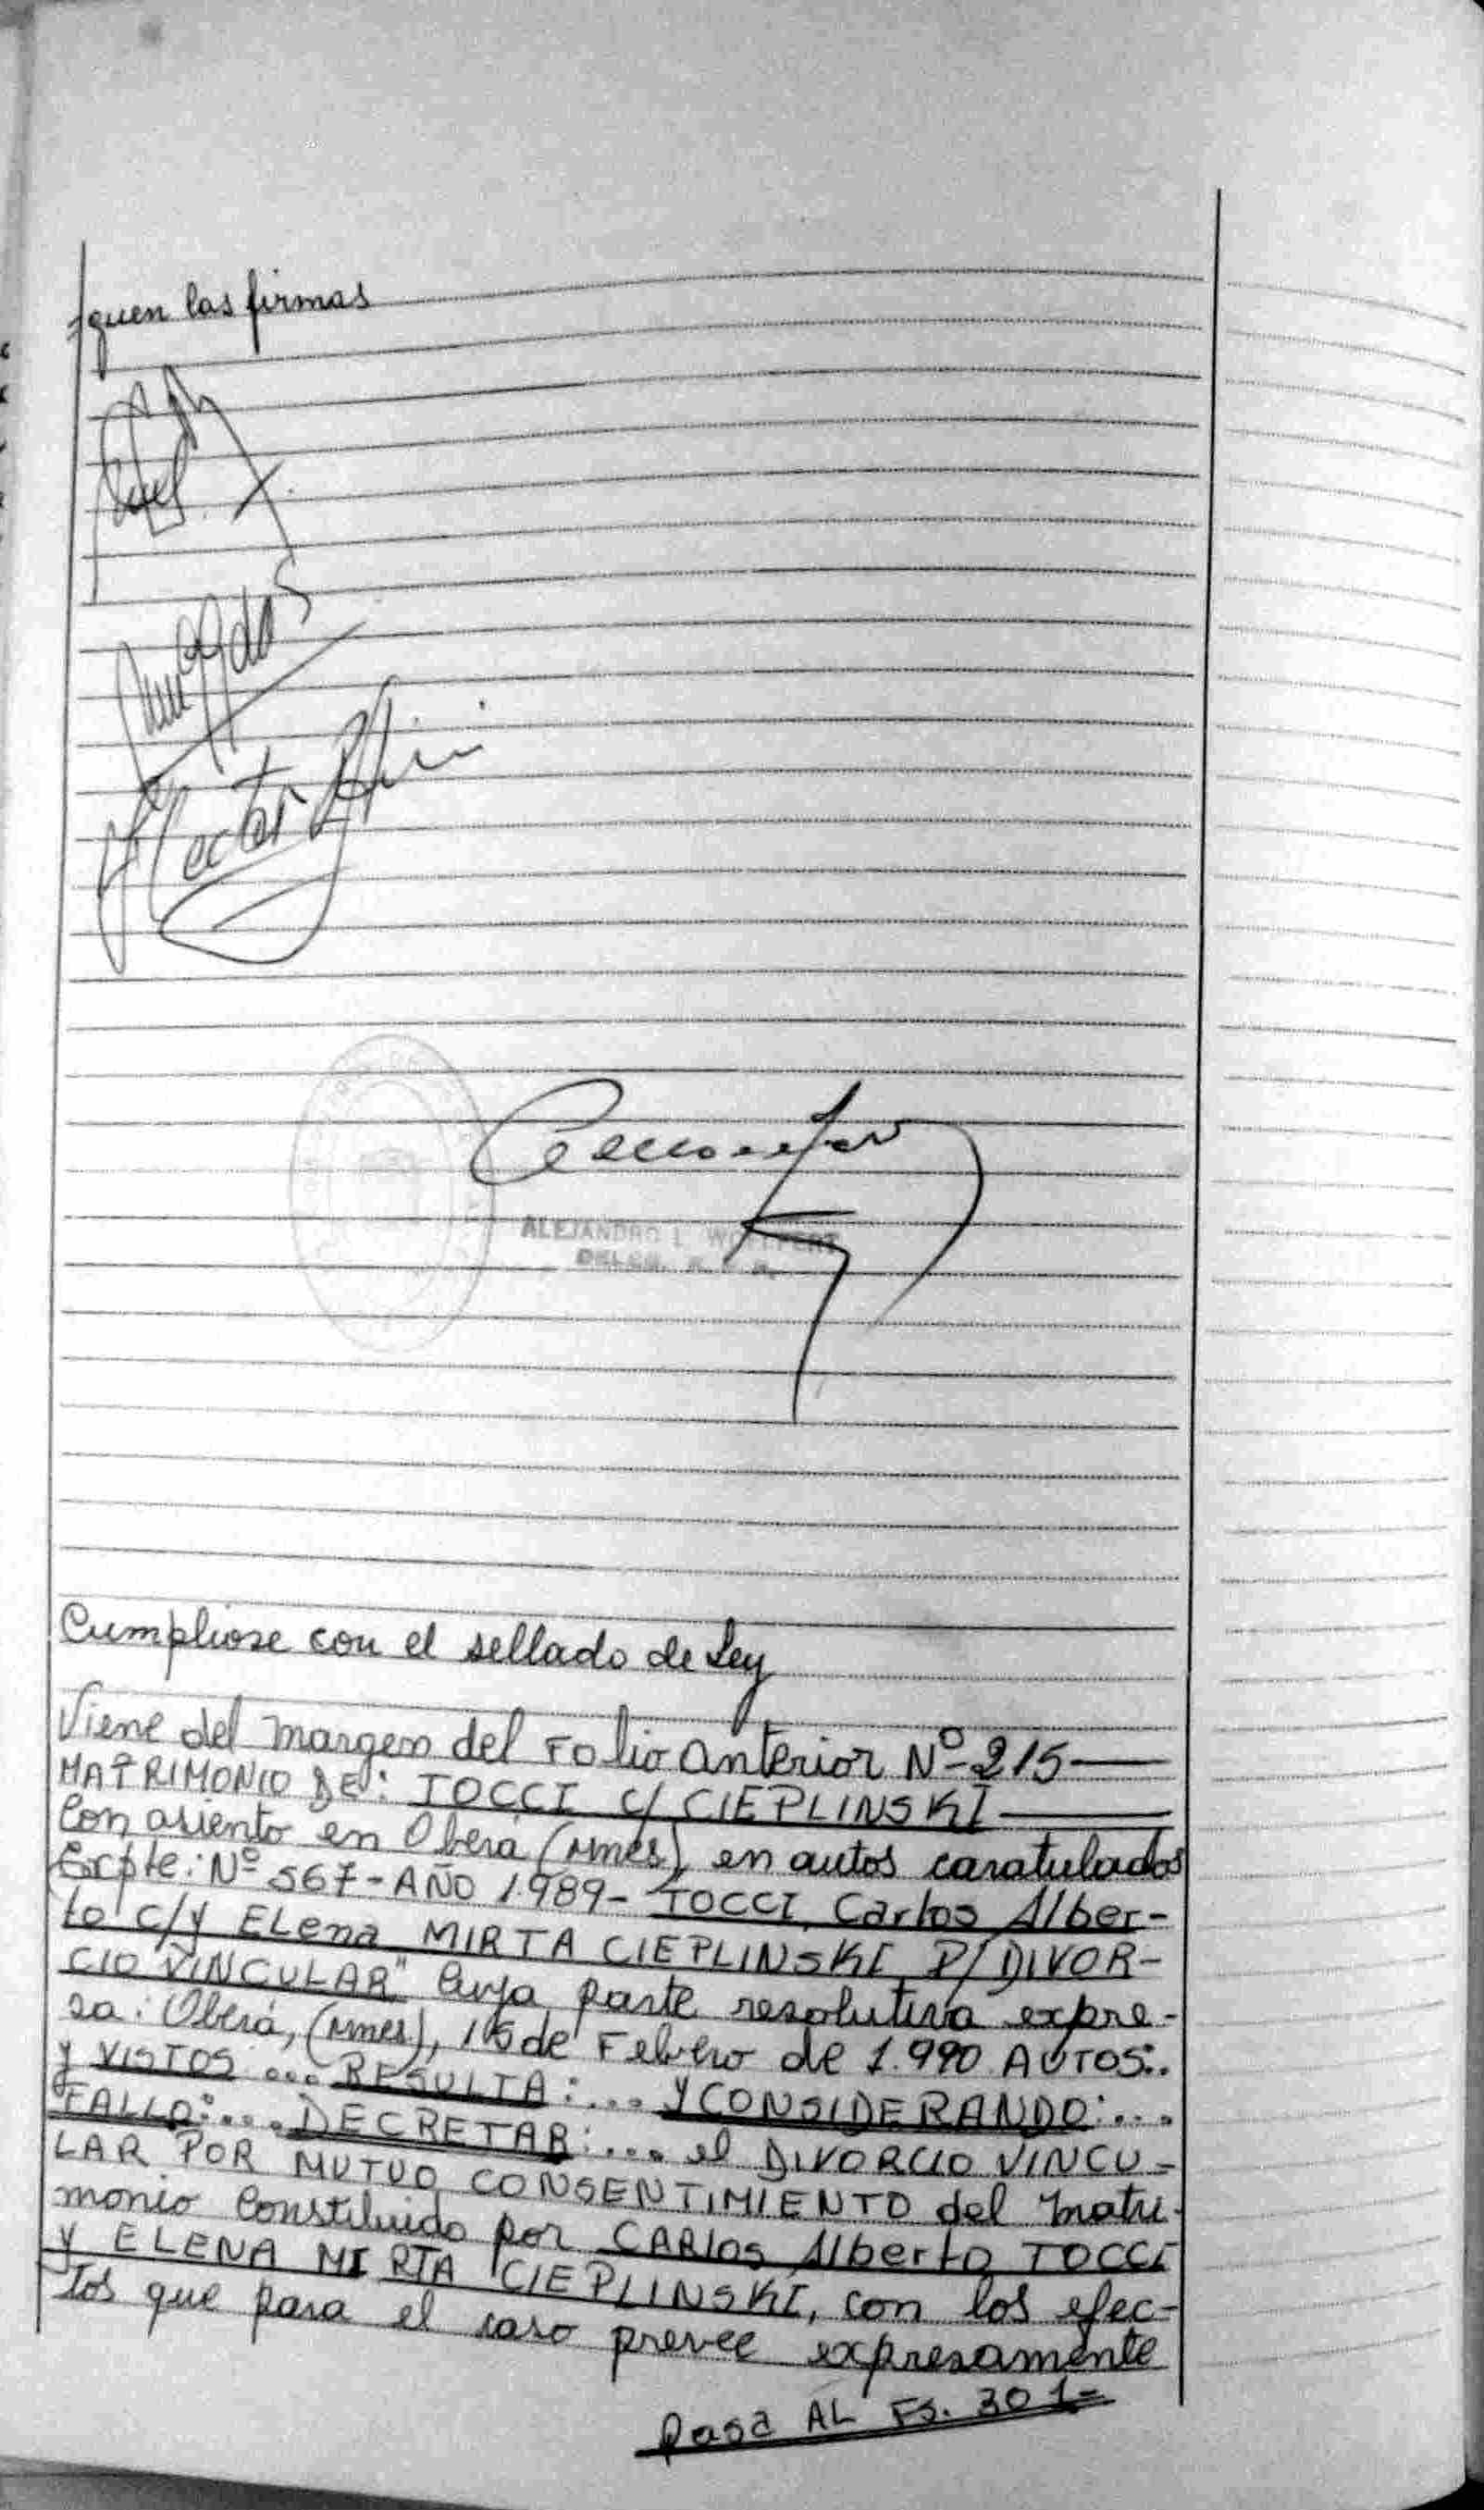 guen las firmas
Hector
ALEJANDRO L. WOLFFERT
DELEG. R. C. P.
Cumpliose con el sellado de Ley
Viene del margen del Folio anterior Nº 215
MATRIMONIO DE: TOCCI c/ CIEPLINSKI
Con asiento en Oberá (Mnes), en autos caratulados
Expte: Nº 567-AÑO 1.989- TOCCI, Carlos Alber-
to c/y ELena MIRTA CIEPLINSKI P/DIVOR-
CIO VINCULAR" Cuya parte resolutiva expre-
sa: Oberá, (Mnes), 15 de Febrero de 1.990 AUTOS:.
y VISTOS ... RESULTA:... Y CONSIDERANDO:...
FALLO:... DECRETAR:... el DIVORCIO VINCU-
LAR POR MUTUO CONSENTIMIENTO del matri-
monio Constituido por CARlos Alberto TOCCI
y ELENA MIRTA CIEPLINSKI, con los efec-
tos que para el caso prevee expresamente
Pasa AL Fs. 301=